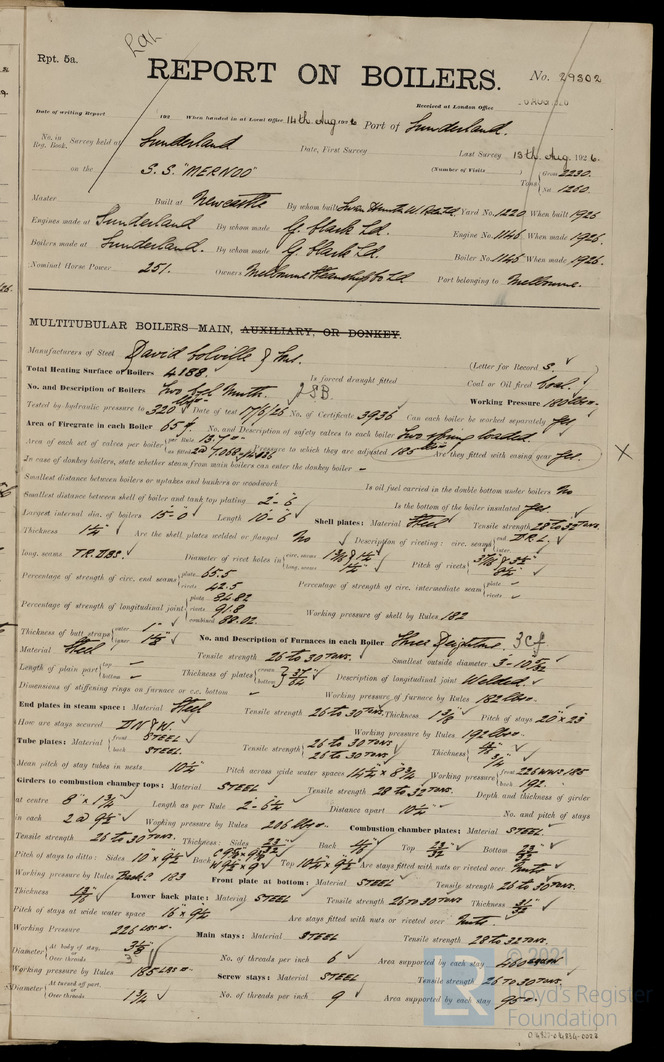 Rpt. 5a.
REPORT ON BOILERS.
No. 29302
Received at London Office
Date of writing Report 192 When handed in at Local Office 14th Aug 1926 Port of Sunderland.
No. in Reg. Book. Survey held at Sunderland Date, First Survey Last Survey 13th Aug 1926.
on the S.S. "MERNOO" (Number of Visits ) Tons Gross 2230. Net 1260.
Master Built at Newcastle By whom built Yard No. 1220 When built 1926
Engines made at Sunderland By whom made G. Clark Ld. Engine No. 1146 When made 1926.
Boilers made at Sunderland. By whom made G. Clark Ld. Boiler No. 1146 When made 1926.
Nominal Horse Power 251. Owners Melbourne Steamship Co Ld. Port belonging to Melbourne.
MULTITUBULAR BOILERS—MAIN, AUXILIARY, OR DONKEY.
Manufacturers of Steel David Colville & Sons. (Letter for Record S.)
Total Heating Surface of Boilers 4188. Is forced draught fitted Coal or Oil fired Coal.
No. and Description of Boilers 2SB. Working Pressure 180 lbs
Tested by hydraulic pressure to 320 Date of test 17/6/26 No. of Certificate 3936 Can each boiler be worked separately yes
Area of Firegrate in each Boiler 65 No. and Description of safety valves to each boiler Two spring loaded.
Area of each set of valves per boiler per Rule 13.7 as fitted Pressure to which they are adjusted 185 Are they fitted with easing gear yes.
In case of donkey boilers, state whether steam from main boilers can enter the donkey boiler -
Smallest distance between boilers or uptakes and bunkers or woodwork Is oil fuel carried in the double bottom under boilers No
Smallest distance between shell of boiler and tank top plating 2'-6" Is the bottom of the boiler insulated yes.
Largest internal dia. of boilers 15'-0" Length 10'-6" Shell plates: Material Steel Tensile strength 28 to 32 Tons.
Thickness Are the shell plates welded or flanged No Description of riveting: circ. seams end D.R.L. inter.
long. seams T.R.D.B.S. Diameter of rivet holes in circ. seams long. seams Pitch of rivets
Percentage of strength of circ. end seams plate 65.5 rivets 42.5 Percentage of strength of circ. intermediate seam plate - rivets -
Percentage of strength of longitudinal joint plate 84.82 rivets 91.8 combined 88.02 Working pressure of shell by Rules 182
Thickness of butt straps outer 1" inner No. and Description of Furnaces in each Boiler Three Deighton. 3 Cf
Material Steel Tensile strength 26 to 30 Tons. Smallest outside diameter
Length of plain part top - bottom - Thickness of plates crown bottom Description of longitudinal joint Welded.
Dimensions of stiffening rings on furnace or c.c. bottom - Working pressure of furnace by Rules 182 lbs
End plates in steam space: Material Steel Tensile strength 26 to 30 Tons. Thickness 1 3/8 Pitch of stays 20 x 23
How are stays secured D.N & W. Working pressure by Rules 192 lbs
Tube plates: Material front STEEL back STEEL. Tensile strength 26 to 30 TONS 26 to 30 TONS. Thickness
Mean pitch of stay tubes in nests 10½ Pitch across wide water spaces 14½ x 8¾ Working pressure front back 192.
Girders to combustion chamber tops: Material STEEL Tensile strength 28 to 32 TONS. Depth and thickness of girder
at centre 8" x 1¾" Length as per Rule Distance apart 10½ No. and pitch of stays
in each 2 @ 9½ Working pressure by Rules 206 lbs Combustion chamber plates: Material STEEL.
Tensile strength 26 to 30 TONS. Thickness: Sides Back Top 23/32 Bottom
Pitch of stays to ditto: Sides 10 x 9½ Back Top 10½ x 9½ Are stays fitted with nuts or riveted over Nuts
Working pressure by Rules Back C 183 Front plate at bottom: Material STEEL Tensile strength 26 to 30 TONS.
Thickness Lower back plate: Material STEEL Tensile strength 26 to 30 TONS. Thickness
Pitch of stays at wide water space 16 x 9½ Are stays fitted with nuts or riveted over Nuts
Working Pressure 226 LBS Main stays: Material STEEL Tensile strength 28 to 32 TONS
Diameter At body of stay, or Over threads No. of threads per inch 6 Area supported by each stay 460
Working pressure by Rules 185 LBS Screw stays: Material STEEL Tensile strength 26 TO 30 TONS.
Diameter At turned off part, or Over threads 1¾ No. of threads per inch 9 Area supported by each stay 95
© 2021
LR
Lloyd's Register
Foundation